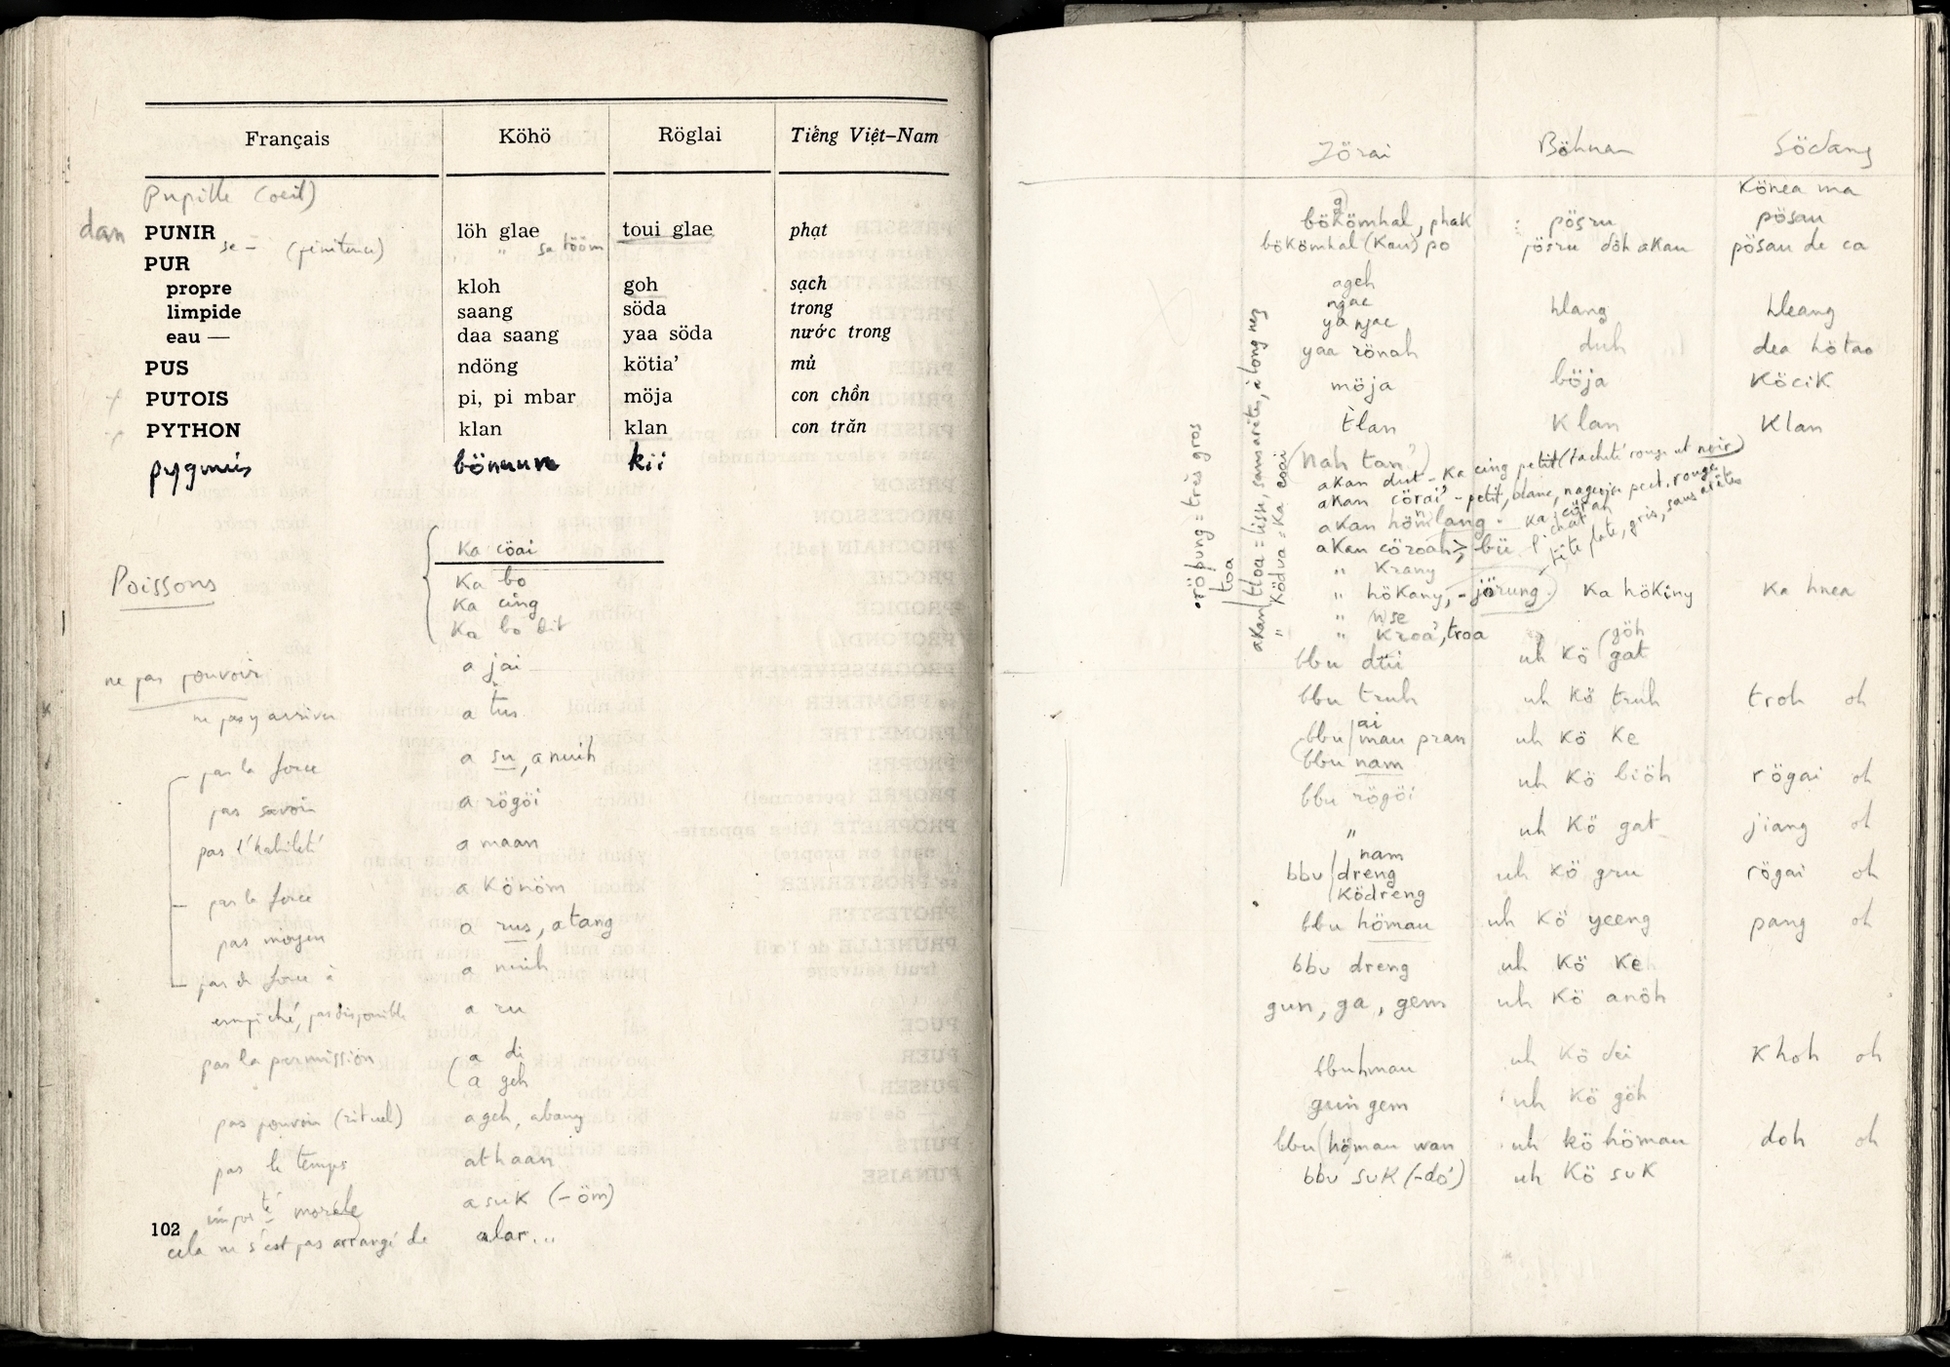 Français Köhö Röglai Tiếng Việt-Nam
Pupille (oeil)
dan PUNIR löh glae toui glae phạt
se — (pénitence) " sa tööm
PUR
propre kloh goh sạch
limpide saang söda trong
eau — daa saang yaa söda nước trong
PUS ndöng kötia' mủ
PUTOIS pi, pi mbar möja con chồn
PYTHON klan klan con trăn
pygmées bönuun kii
Poissons
Ka cöai
Ka bo
Ka cing
Ka bo dit
ne pas pouvoir a jai
ne pas y arriver a tus
par la force a su, a nuih
pas savoir a rögöi
pas l'habileté a maan
par la force a könöm
pas moyen a rus, a tang
pas de force à a nuih
empêché, pas disponible a ru
pas la permission a di
a geh
pas pouvoir (rituel) a geh, abang
pas le temps athaan
impossté morale a suk (-öm)
102
cela ne s'est pas arrangé de alar...
Jörai Böhnan Södang
Könea ma
bökömhal, phak pösru pösau
bökömhal (Kau) po pösru döh akan pösau de ca
ageh
ngac hlang hleang
ya ngac
yaa rönah duh dea hötao
möja böja Köcik
tlan Klan Klan
(Nah tan?)
akan dut - Ka cing petit (tacheté rouge et noir)
akan cörai' - petit, blanc, nageoire pect. rouge
akan hömlang
akan cöroah bü
tête plate, gris, sans arêtes
" Krany
" hökany, - jörung) Ka hökiny Ka hnea
" wse
" Kroa', troa
röpung = très gros
toa
akan ttoa = lisse, sans arêtes, à long nez
" Ködua = Ka cöai
göh
bbu düi uh Kö gat
bbu truh uh Kö truh troh oh
ai
bbu mau pran uh Kö Ke
bbu nam
bbu rögöi uh Kö biöh rögai oh
" uh Kö gat jiang oh
nam
bbu dreng uh Kö gru rögai oh
Ködreng
bbu hömau uh Kö yceng pang oh
bbu dreng uh Kö Keh
gun, ga, gem uh Kö anöh
bbuhmau uh Kö dei Khoh oh
gun gem uh Kö göh
bbu hömau wan uh kö hömau doh oh
bbu suk (-do') uh Kö suK